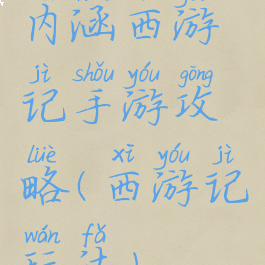 内涵西游
jì shǒu yóu gōng
记手游攻
lüè xī yóu jì
略(西游记
wán fǎ
玩法)